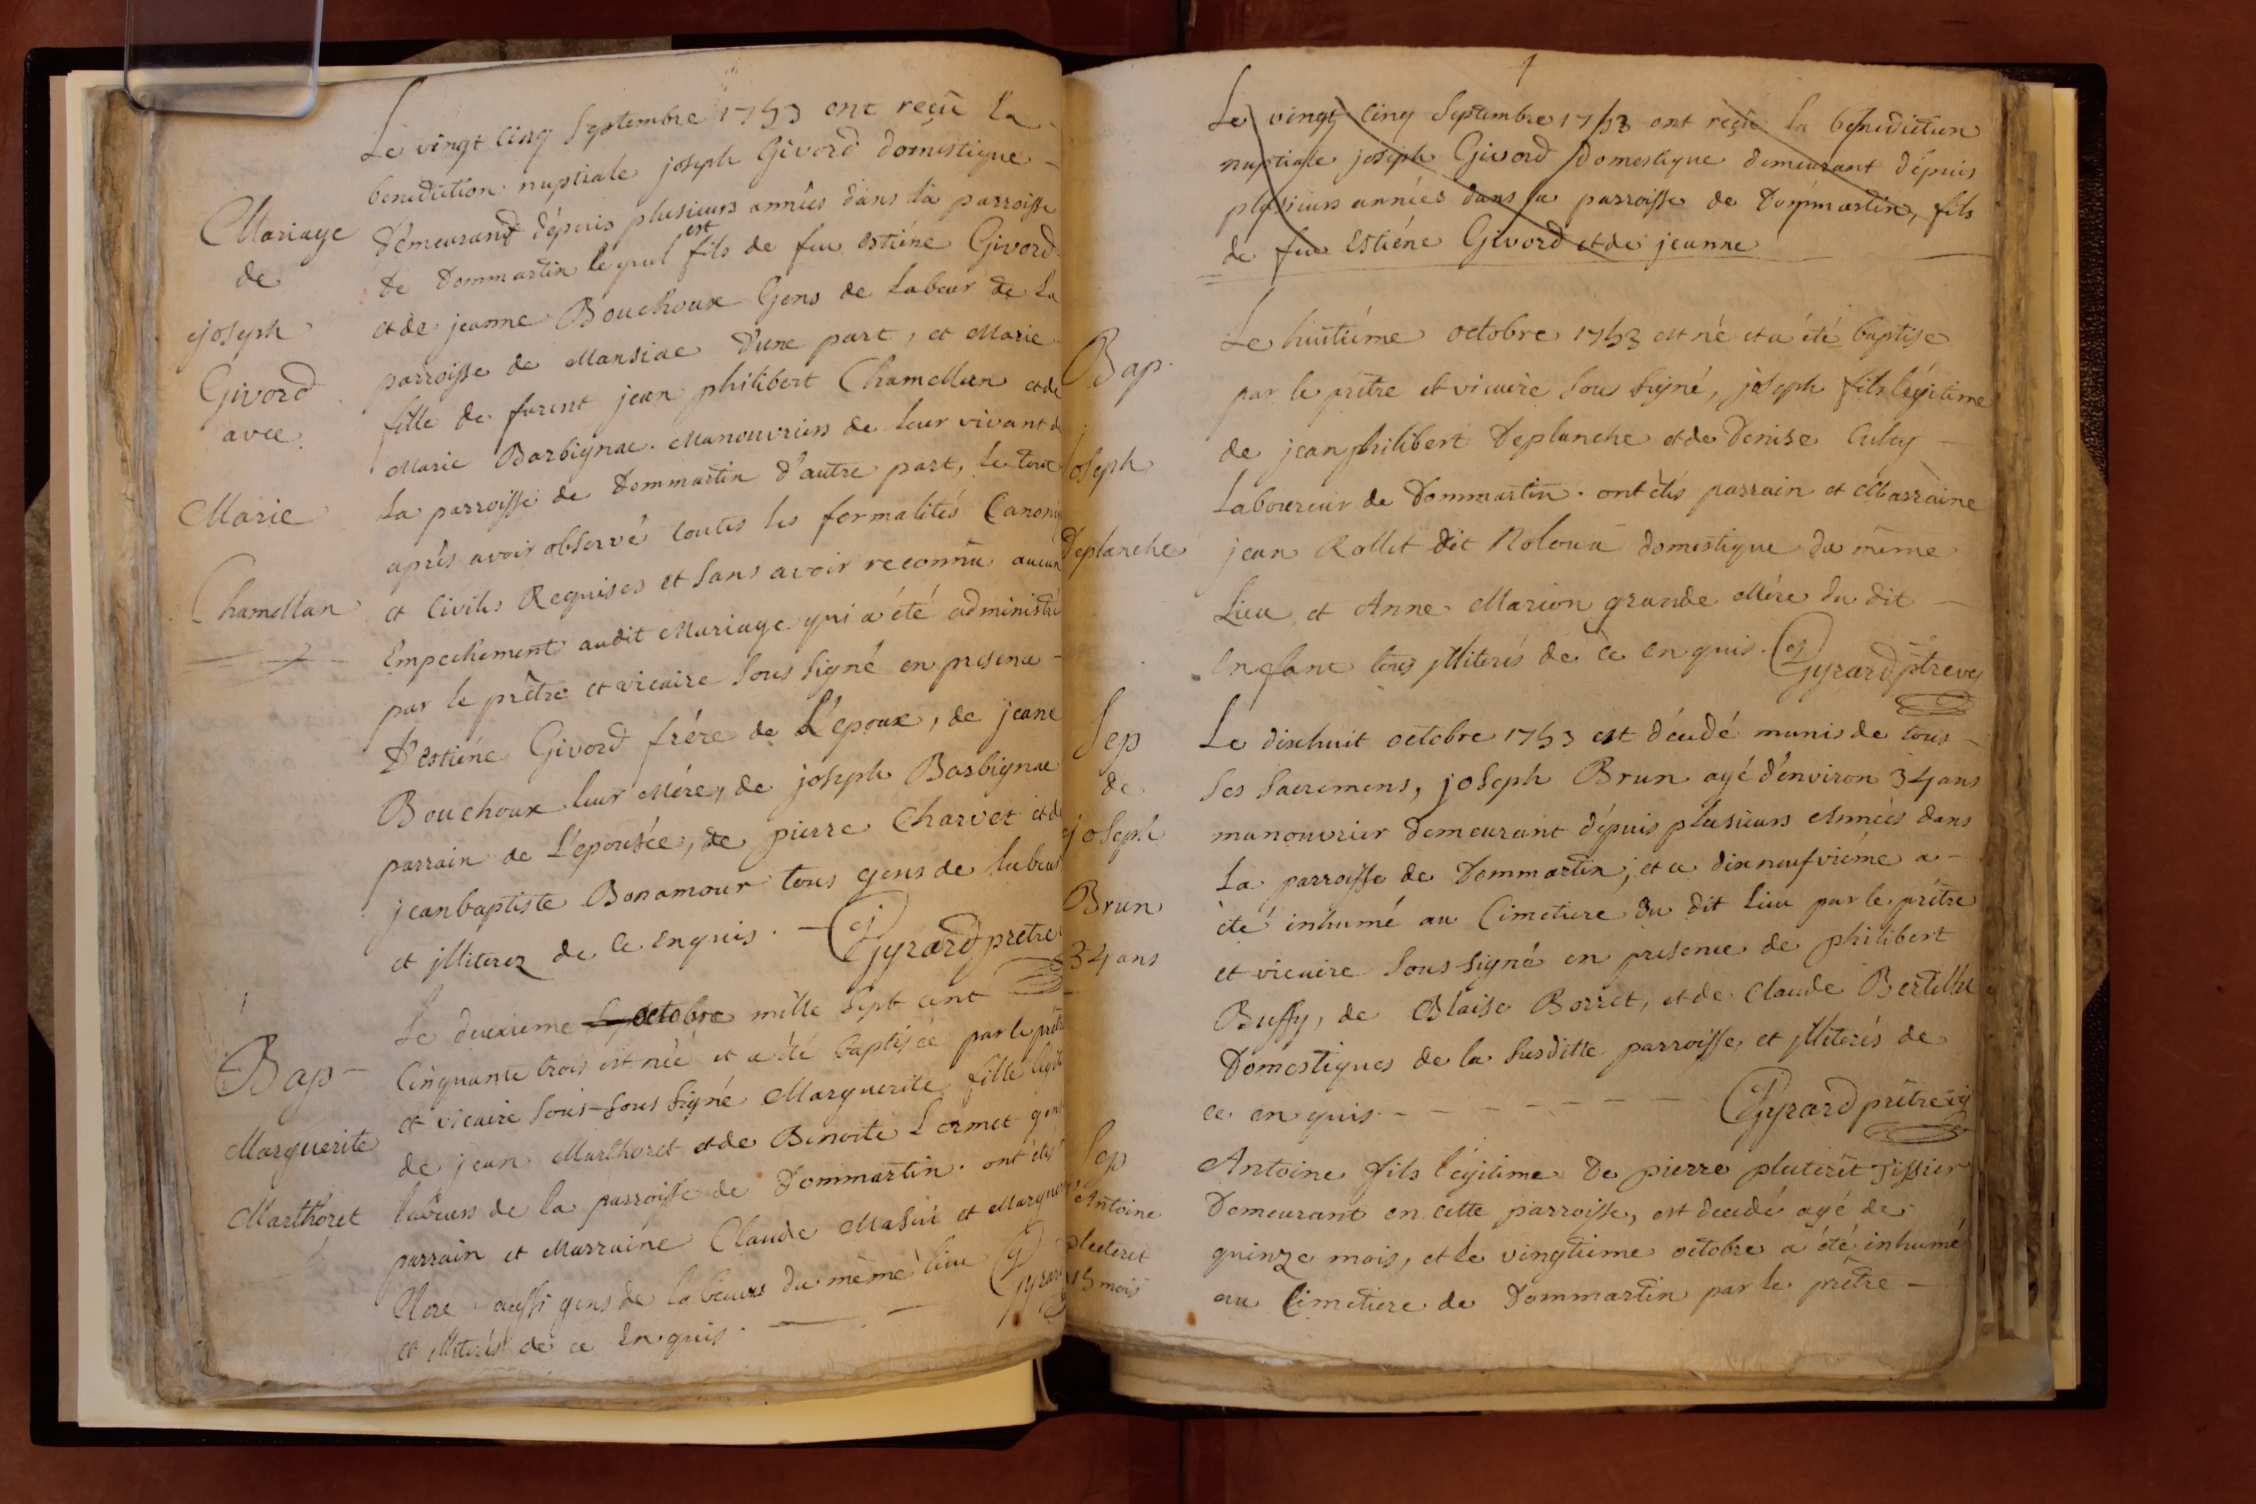 Mariage
de
joseph
Givord
avec
Marie
Chamellan
Le vingt cinq Septembre 1753 ont reçu la
benediction nuptiale joseph Givord domestique
demeurant dépuis plusieurs années dans la parroisse
de Dommartin lequel est fils de feu estiéne Givord
et de jeanne Bouchoux Gens de Labeur de La
parroisse de Mansiac d'une part, et Marie
fille de furent jean philibert Chamellan et de
Marie Barbignac Manouvriers de leur vivant de
La parroisse de Dommartin d'autre part, le tout
aprés avoir observé toutes les formalités Canoni
et Civiles Requises et sans avoir reconnu aucun
Empechement audit Mariage qui a été administré
par le prêtre et vicaire sous signé en presence
D'estiéne Givord frére de L'epoux, de jeane
Bouchoux leur Mére, de joseph Barbignac
parrain de L'epousée, de pierre Charvet et de
jean baptiste Bonamour tous gens de labeur
et jlliterez de ce enquis. Gyrard prêtre
Bap
Marguerite
Marthoret
Le deuxieme octobre mille sept cent
Cinquante trois est née et a été baptisée par le prêtre
et vicaire sous-sous signé Marguerite fille legit
de jean Marthoret et de Benoite Lormet gens
labeurs de la parroisse de Dommartin. ont étés
parrain et Marraine Claude Masuï et Margue
Clore aussi gens de labeurs du même lieu Gyrard
et jlliterés de ce Enquis.
Le vingt cinq Septembre 1753 ont reçu la benediction
nuptiale joseph Givord domestique demeurant dépuis
plusieurs années dans la parroisse de Dommartin, fils
de feu Estiéne Givord et de jeanne
Bap.
joseph
Deplanche
Le huitiéme octobre 1753 est né et a été baptise
par le prêtre et vicaire sous signé, joseph fils légitime
de jean philibert Deplanche et de Denise Cubey
Laboureur de Dommartin. ont étés parrain et Marraine
jean Rollet dit Noloüa domestique du même
Lieu et Anne Marion grande Mére du dit
Enfant tous jlliterés de ce enquis. Gyrard ptre vic
Sep
de
joseph
Brun
34 ans
Le dixhuit octobre 1753 est décédé munis de tous
ses sacremens, joseph Brun agé d'environ 34 ans
manouvrier demeurant dépuis plusieurs Années dans
La parroisse de Dommartin, et ce dixneufviéme a
été inhumé au Cimetiere du dit lieu par le prêtre
et vicaire sous-signé en presence de philibert
Buffy, de Blaise Borret, et de Claude Bertillet
Domestiques de la susditte parroisse et jlliterés de
ce enquis Gyrard prêtre vic
Sep
Antoine
pluteret
15 mois
Antoine fils légitime De pierre pluteret Tissier
Demeurant en cette parroisse, est decedé agé de
quinze mois, et le vingtiéme octobre a été inhumé
au Cimetiere de Dommartin par le prêtre